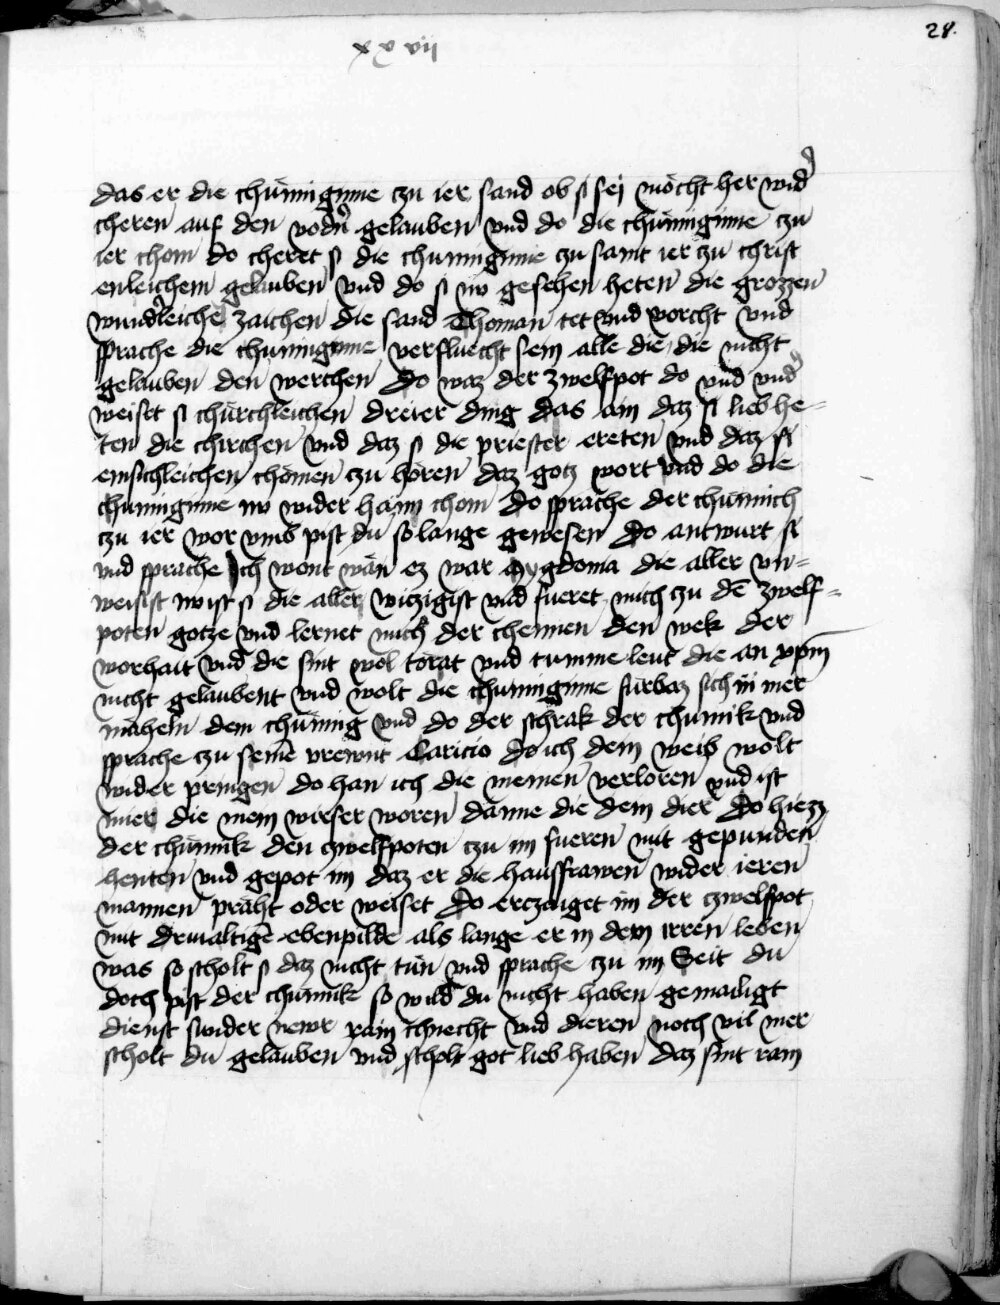 xxvii
28.
das er die chünniginne czu ier sand ob si sei möcht her wider
cheren auf den vodern gelauben vnd do die chünniginne czu
ier chom do cheret si die chunniginne czu samt ier czu christ
enleichem gelauben vnd do si nv gesehen heten die grozzen
wunderleiche zaichen die sand Thoman tet vnd vorcht vnd
sprache die chunniginne verfluecht sein alle die die nicht
gelauben den werchen Do waz der zwelfpot do vnd vnder
weiset si chürchleichen dreier ding das ain daz si lieb he-
ten die chirchen vnd daz si die priester ereten vnd daz si
emsichleichen chömen czu hören daz gotz wort vnd do die
chunniginne nv wider haim chom do sprache der chunnich
czu ier wor vmb pist du so lange gewesen Do antwurt si
vnd sprache Ich wont wän ez war Mygdoma die aller vn-
weisist nv ist si die aller witzigist vnd fueret mich czu dē zwelf-
poten gotze vnd lernet mich der chennen den wek der
worhait vnd die sint wol törat vnd tumme leut die an xpm̄
nicht gelaubent vnd wolt die chunniginne fürbaz sich ni mer
mäheln dem chünnig vnd do der schrak der chunnik vnd
sprache czu seinē vrewnt Caricio do ich dem weib wolt
wider pringen do han ich die meinen verloren vnd ist
mier die mein wirser woren danne die dein dier Do hiez
der chünnik den zwelfpoten czu im fueren mit gepunden
henten vnd gepot im daz er die hausfrawen wider ieren
mannen präht oder weiset Do erczaiget im der czwelfpot
mit drivaltigē ebenpilde als lange er in dem irren leben
was so scholt si daz nicht tun vnd sprache czu im Seit du
doch pist der chünnik so wild du nicht haben gemailigt
dienst sunder newr rain chnecht vnd dieren noch vil mer
scholt du gelauben vnd scholt got lieb haben daz sint rain